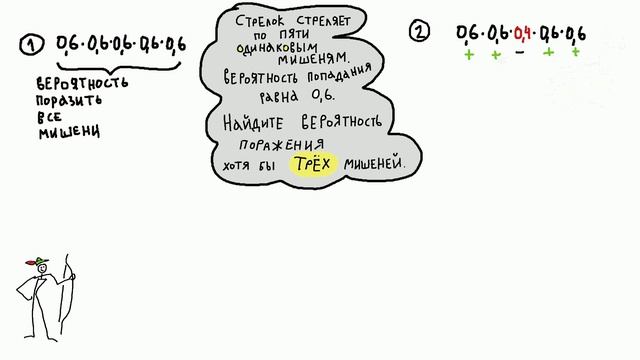 1
0,6·0,6·0,6·0,6·0,6
ВЕРОЯТНОСТЬ
ПОРАЗИТЬ
ВСЕ
МИШЕНИ
СТРЕЛОК СТРЕЛЯЕТ
ПО ПЯТИ
ОДИНАКОВЫМ
МИШЕНЯМ.
ВЕРОЯТНОСТЬ ПОПАДАНИЯ
РАВНА 0,6.
НАЙДИТЕ ВЕРОЯТНОСТЬ
ПОРАЖЕНИЯ
ХОТЯ БЫ ТРЁХ МИШЕНЕЙ.
2
0,6·0,6·0,4·0,6·0,6
+ + – + +